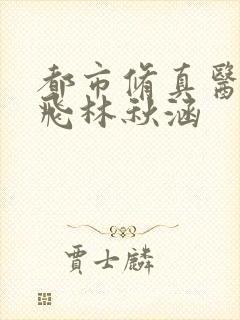 都市脩真醫
飛林秋涵
賈士麟